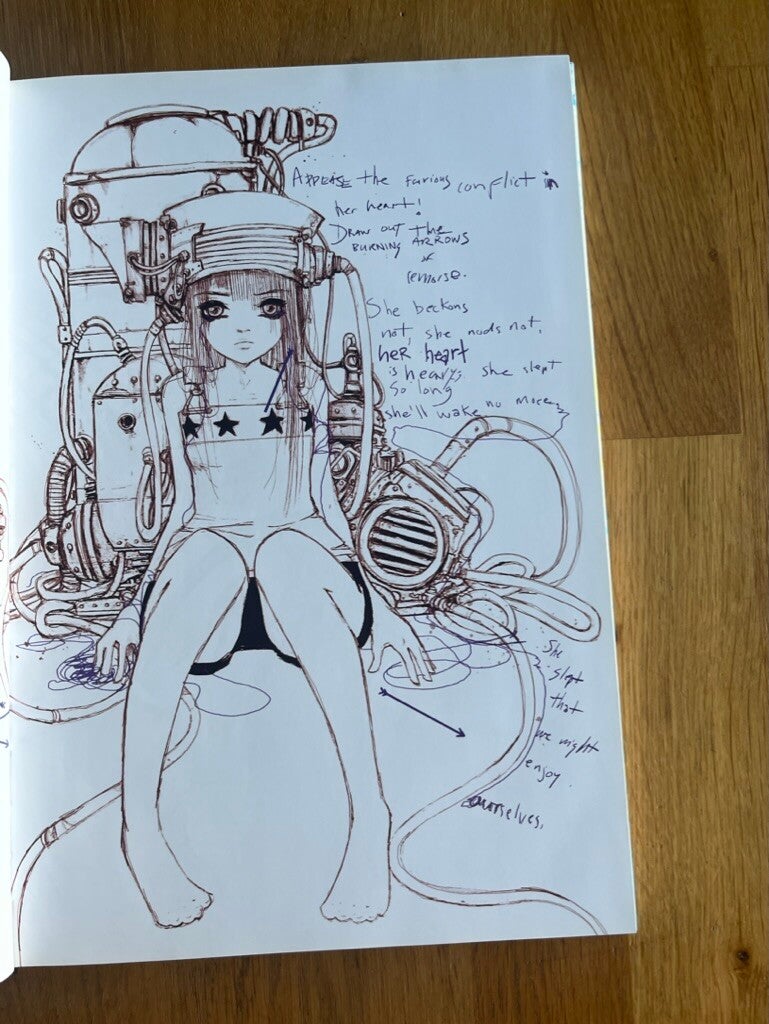 APPEASE the furious conflict in
her heart!
DRAW OUT the
BURNING ARROWS
of
remorse.
She beckons
not, she nods not,
heR heart
is heavy, she slept
So long
she'll wake no more
She
slept
that
we might
enjoy
ourselves.